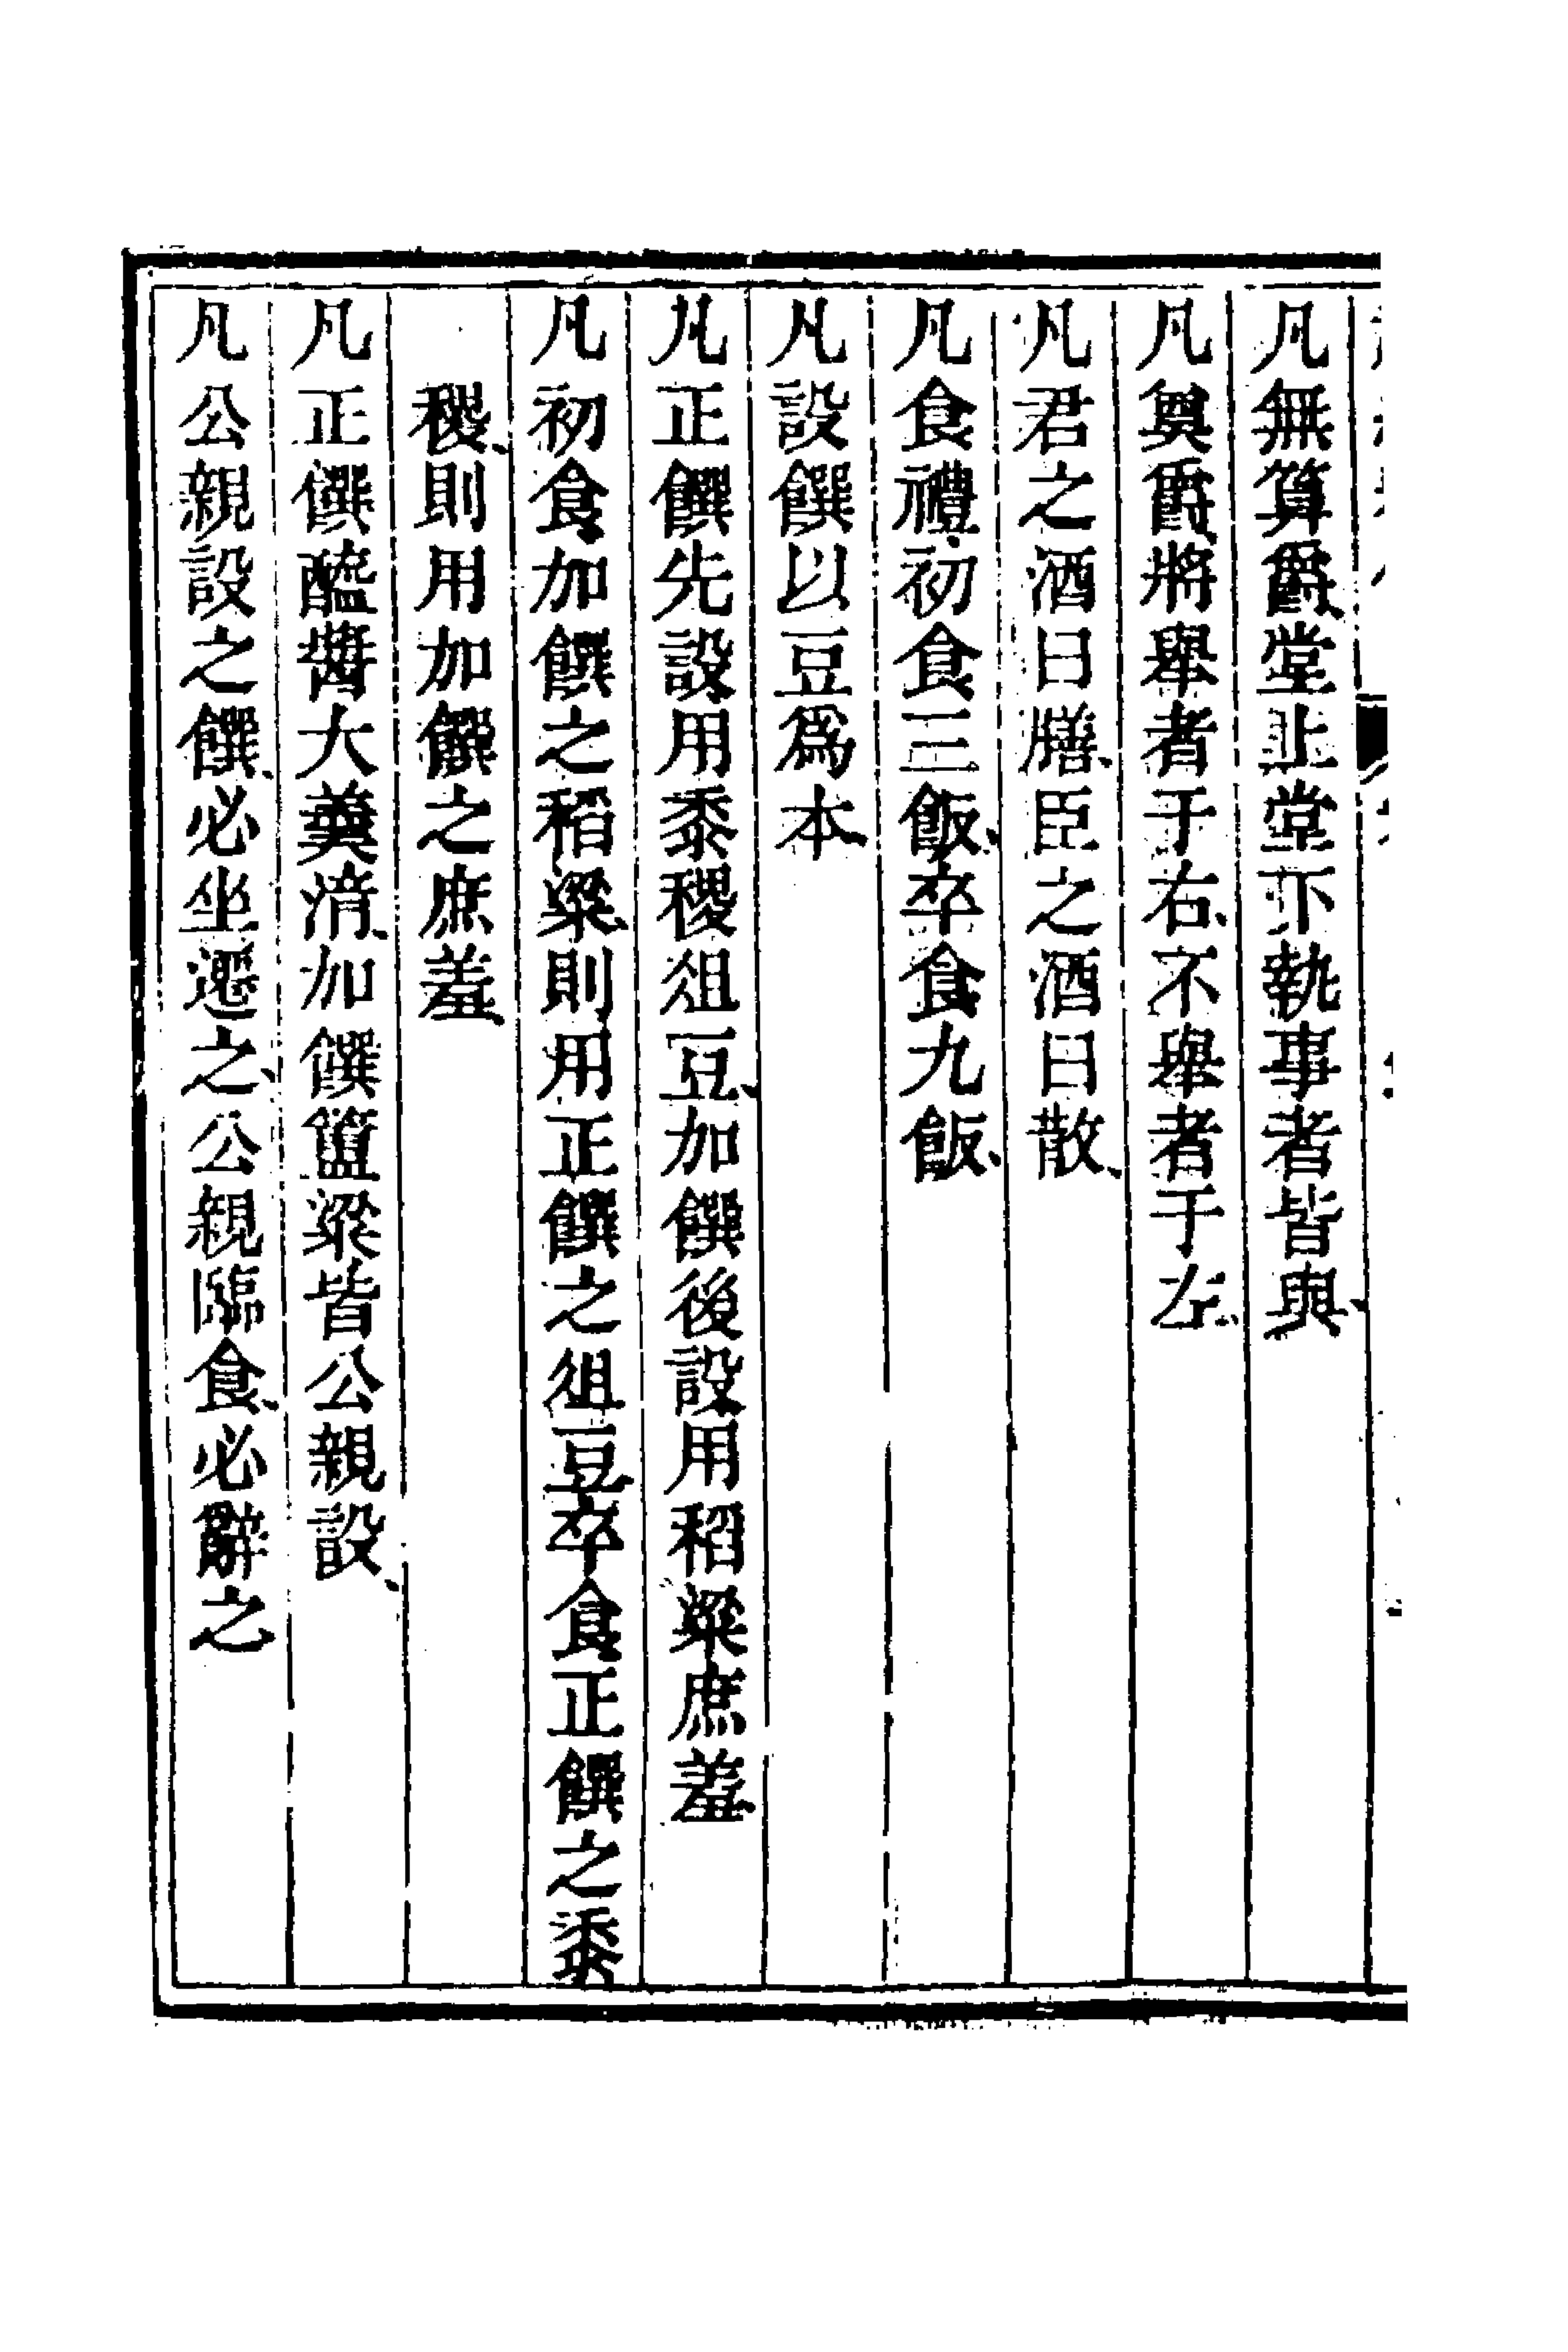 凡無算爵、堂上堂下執事者皆與、
凡奠爵、將舉者于右、不舉者于左、
凡君之酒曰膳、臣之酒曰散、
凡食禮、初食三飯、卒食九飯、
凡設饌以豆爲本、
凡正饌先設用黍稷俎豆、加饌後設用稻粱庶羞、
凡初食加饌之稻粱、則用正饌之俎豆、卒食正饌之黍
稷、則用加饌之庶羞、
凡正饌醯醬大羹湆、加饌簠粱皆公親設、
凡公親設之饌、必坐遷之、公親臨食、必辭之